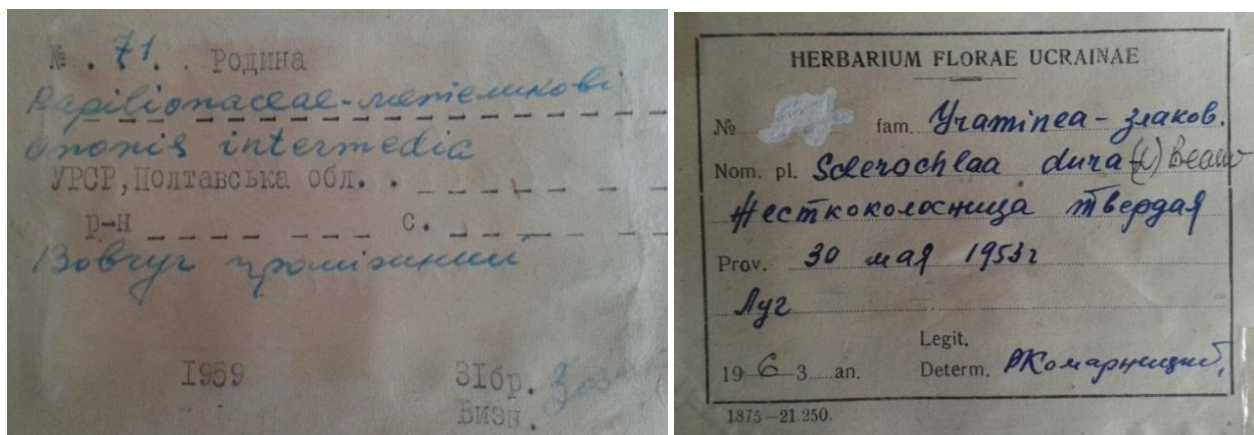 № . 71. . Родина
Papilionaceae-метеликові
Ononis intermedia
УРСР,Полтавська обл. .
р-н с.
Вовчуг проміжний
1959 ЗІбр.
Визн.
HERBARIUM FLORAE UCRAINAE
№ fam. Graminea - злаков.
Nom. pl. Sclerochlaa dura (L) Beauv
Жесткоколосница твердая
Prov. 30 мая 1953г
Луг
Legit.
19 6 3 an. Determ. РКомарницкий
1875—21.250.